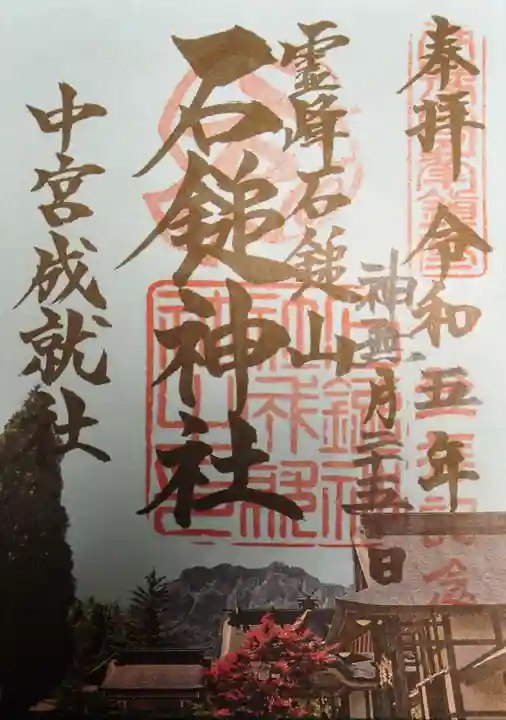 奉拝 令和五年
神無月二十五日
霊峰石鎚山
石鎚神社
中宮成就社